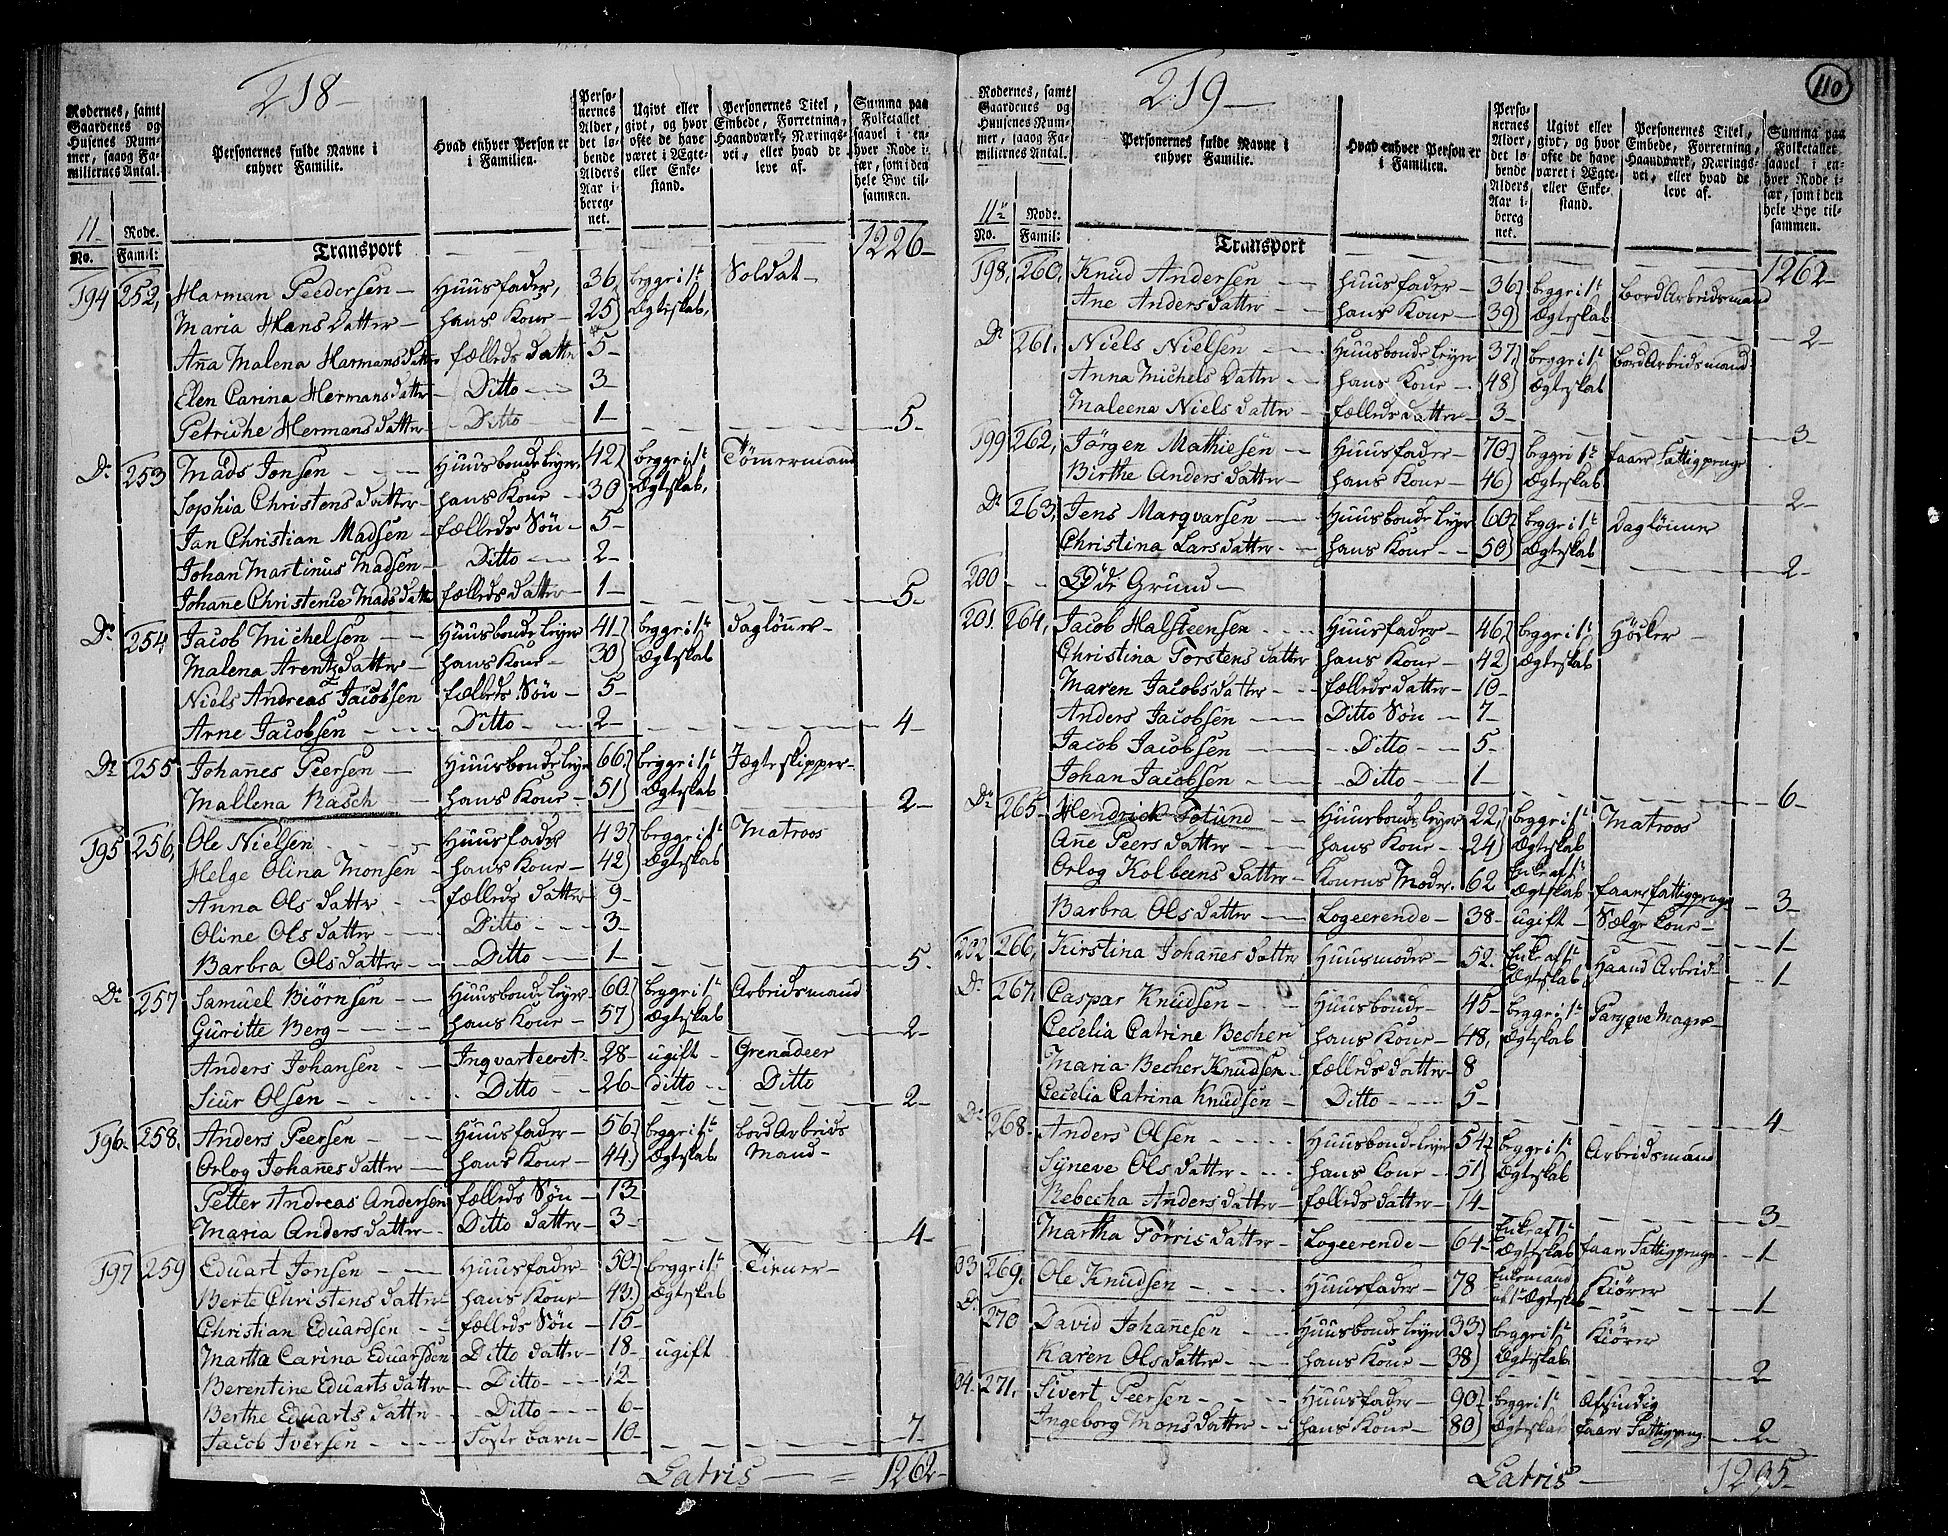 218
Rodernes, samt Gaardenes og Husenes Nummer, saaog Familiernes Antal.
Personernes fulde Navne i enhver Familie.
Hvad enhver Person er i Familien.
Personernes Alder, det løbende Alders Aar iberegnet.
Ugivt eller givt, og hvor ofte de have været i Ægte- eller Enkestand.
Personernes Titel, Embede, Forretning, Haandværk, Nærings-vei, eller hvad de leve af.
Summa paa Folketallet saavel i enhver Rode især, som i den hele Bye tilsammen.
11 Rode.
No. Famil:
Transport — 1226
194 252, Harman Peedersen — Huusfader, 36, begge i 1te Soldat
Maria Hans datter — hans Kone — 25 Ægteskab,
Aña Malena Harmans datter fælleds datter 5
Elen Carina Hermans datter — Ditto — 3
Petriche Hermans datter — Ditto — 1 — 5
Do 253 Mads Jonsen — Huusbonde leyer 42 begge i 1te Tømermand
Sophia Christens datter — hans Kone — 30 Ægteskab,
Jan Christian Madsen — fælleds Søn — 5
Johan Martinus Madsen — Ditto — 2
Johañe Christense Mads datter fælleds datter — 1 — 5
Do 254 Jacob Michelsen — Huusbonde leyer 41 begge i 1te Dagløñer
Malena Arentz datter — hans Kone — 30 Ægteskab
Niels Andreas Jacobsen fælleds Søn — 5
Arne Jacobsen — Ditto — 2 — 4
Do 255 Johañes Peersen — Huusbonde leyer 66 begge i 1te Jægteskipper
Mallena Rasch — hans Kone — 51 Ægteskab — 2
195 256, Ole Nielsen — Huusfader 43 begge i 1te Matroos
Helge Olina Monsen — hans Kone — 42 Ægteskab
Anna Ols datter — fælleds datter 9
Oline Ols datter — Ditto — 3
Barbra Ols datter — Ditto — 1 — 5
Do 257 Samuel Biørnsen — Huusbonde leyer 60 begge i 1te Arbeidsmand
Guritte Berg — hans Kone — 57 Ægteskab — 2
Anders Johansen — Inqvarteeret — 28 — ugift — Grenadeer
Siur Olsen — Ditto — 26 — ditto — Ditto — 2
196 258, Anders Peersen — Huusfader — 56 begge i 1te bord Arbeids
Orlog Johañes datter — hans Kone — 44 Ægteskab Mand
Petter Andreas Andersen fælleds Søn — 13
Maria Anders datter — Ditto datter — 3 — 4
197 259 Eduart Jonsen — Huusfader 50 begge i 1te
Berte Christens datter hans Kone — 43 Ægteskab
Christian Eduardsen — fælleds Søn — 15
Martta Carina Eduardsen Ditto datter — 18 — ugift
Berentine Eduarts datter — Ditto — 12
Berthe Eduarts datter — Ditto — 6
Jacob Iversen — Foste barn — 10 — 7
Latris — 1262
219
110
Rodernes, samt Gaardenes og Husenes Nummer, saaog Familiernes Antal.
Personernes fulde Navne i enhver Familie.
Hvad enhver Person er i Familien.
Personernes Alder, det løbende Alders Aar iberegnet.
Ugivt eller givt, og hvor ofte de have været i Ægte- eller Enkestand.
Personernes Titel, Embede, Forretning, Haandværk, Nærings-vei, eller hvad de leve af.
Summa paa Folketallet saavel i enhver Rode især, som i den hele Bye tilsammen.
11te Rode.
No. Famil:
Transport 1262
198, 260, Knud Andersen — Huusfader, 36 begge i 1te bord Arbeidsmand
Ane Anders datter — hans Kone — 39 Ægteskab — 2
Do 261, Niels Nielsen — Huusbonde leyer 37 begge i 1te bord Arbeidsmand
Anna Michels datter — hans Kone — 48 Ægteskab
Maleena Niels datter — fælleds datter — 3 — 3
199 262, Jørgen Mathiesen — Huusfader — 70 begge i 1te faaer Fattigpenge
Birthe Anders datter — hans Kone — 46 Ægteskab — 2
Do 263, Jens Marqvarsen — Huusbonde leyer 60 begge i 1te Dagløñer
Christina Lars datter — hans Kone — 50 Ægteskab — 2
200 — Øde Grund
201. 264, Jacob Halsteensen — Huusfader — 46 begge i 1te Høcker
Christina Torstens datter hans Kone — 42 Ægteskab
Maren Jacobs datter — fælleds datter — 10
Anders Jacobsen — Ditto Søn — 7
Jacob Jacobsen — Ditto — 5
Johan Jacobsen — Ditto — 1 — 6
Do 265 Hendrick — Huusbonde leyer 22 begge i 1te Matroos
Ane Peers datter — hans Kone — 24 Ægteskab
Orlog Kolbeens datter — Konens Moder. 62 Enke af 1te Ægteskab faaer fattigpenge — 3
Barbra Ols datter — Logeerende — 38 — ugift — Sælge Kone — 1
202 266, Kirstina Johañes datter Huusmoder — 52. Enke af 1te Ægteskab Haand Arbeid — 1
Do 267, Caspar Knudsen — Huusbonde — 45 — begge i 1te
Cecelia Catrine Becher hans Kone — 48, Ægteskab
Maria Becher Knudsen — fælleds datter — 8
Cecelia Catrina Knudsen — Ditto — 5 — 4
Do 268 Anders Olsen — Huusbonde leyer 54 begge i 1te Arbeidsmand
Syneve Ols datter — hans Cone — 51 Ægteskab
Rebecha Anders datter — fælleds datter — 14 — 3
Martha Tørris datter — Logeerende — 64 — Enke af 1te Ægteskab faaer Fattigpenge — 1
03 269, Ole Knudsen — Huusfader — 78 Enkemand af 1te Ægteskab Kiører — 1
D. 270 David Johañesen — Huusbonde leyer 33 begge i 1te Kiører
Karen Ols datter — hans Kone — 38 Ægteskab — 2
04. 271. Sivert Peersen — Huusfader — 90 begge i 1te Afsindig
Ingeborg Mons datter — hans Kone — 80 Ægteskab faaer Fattigpenge — 2
Latris — 1295